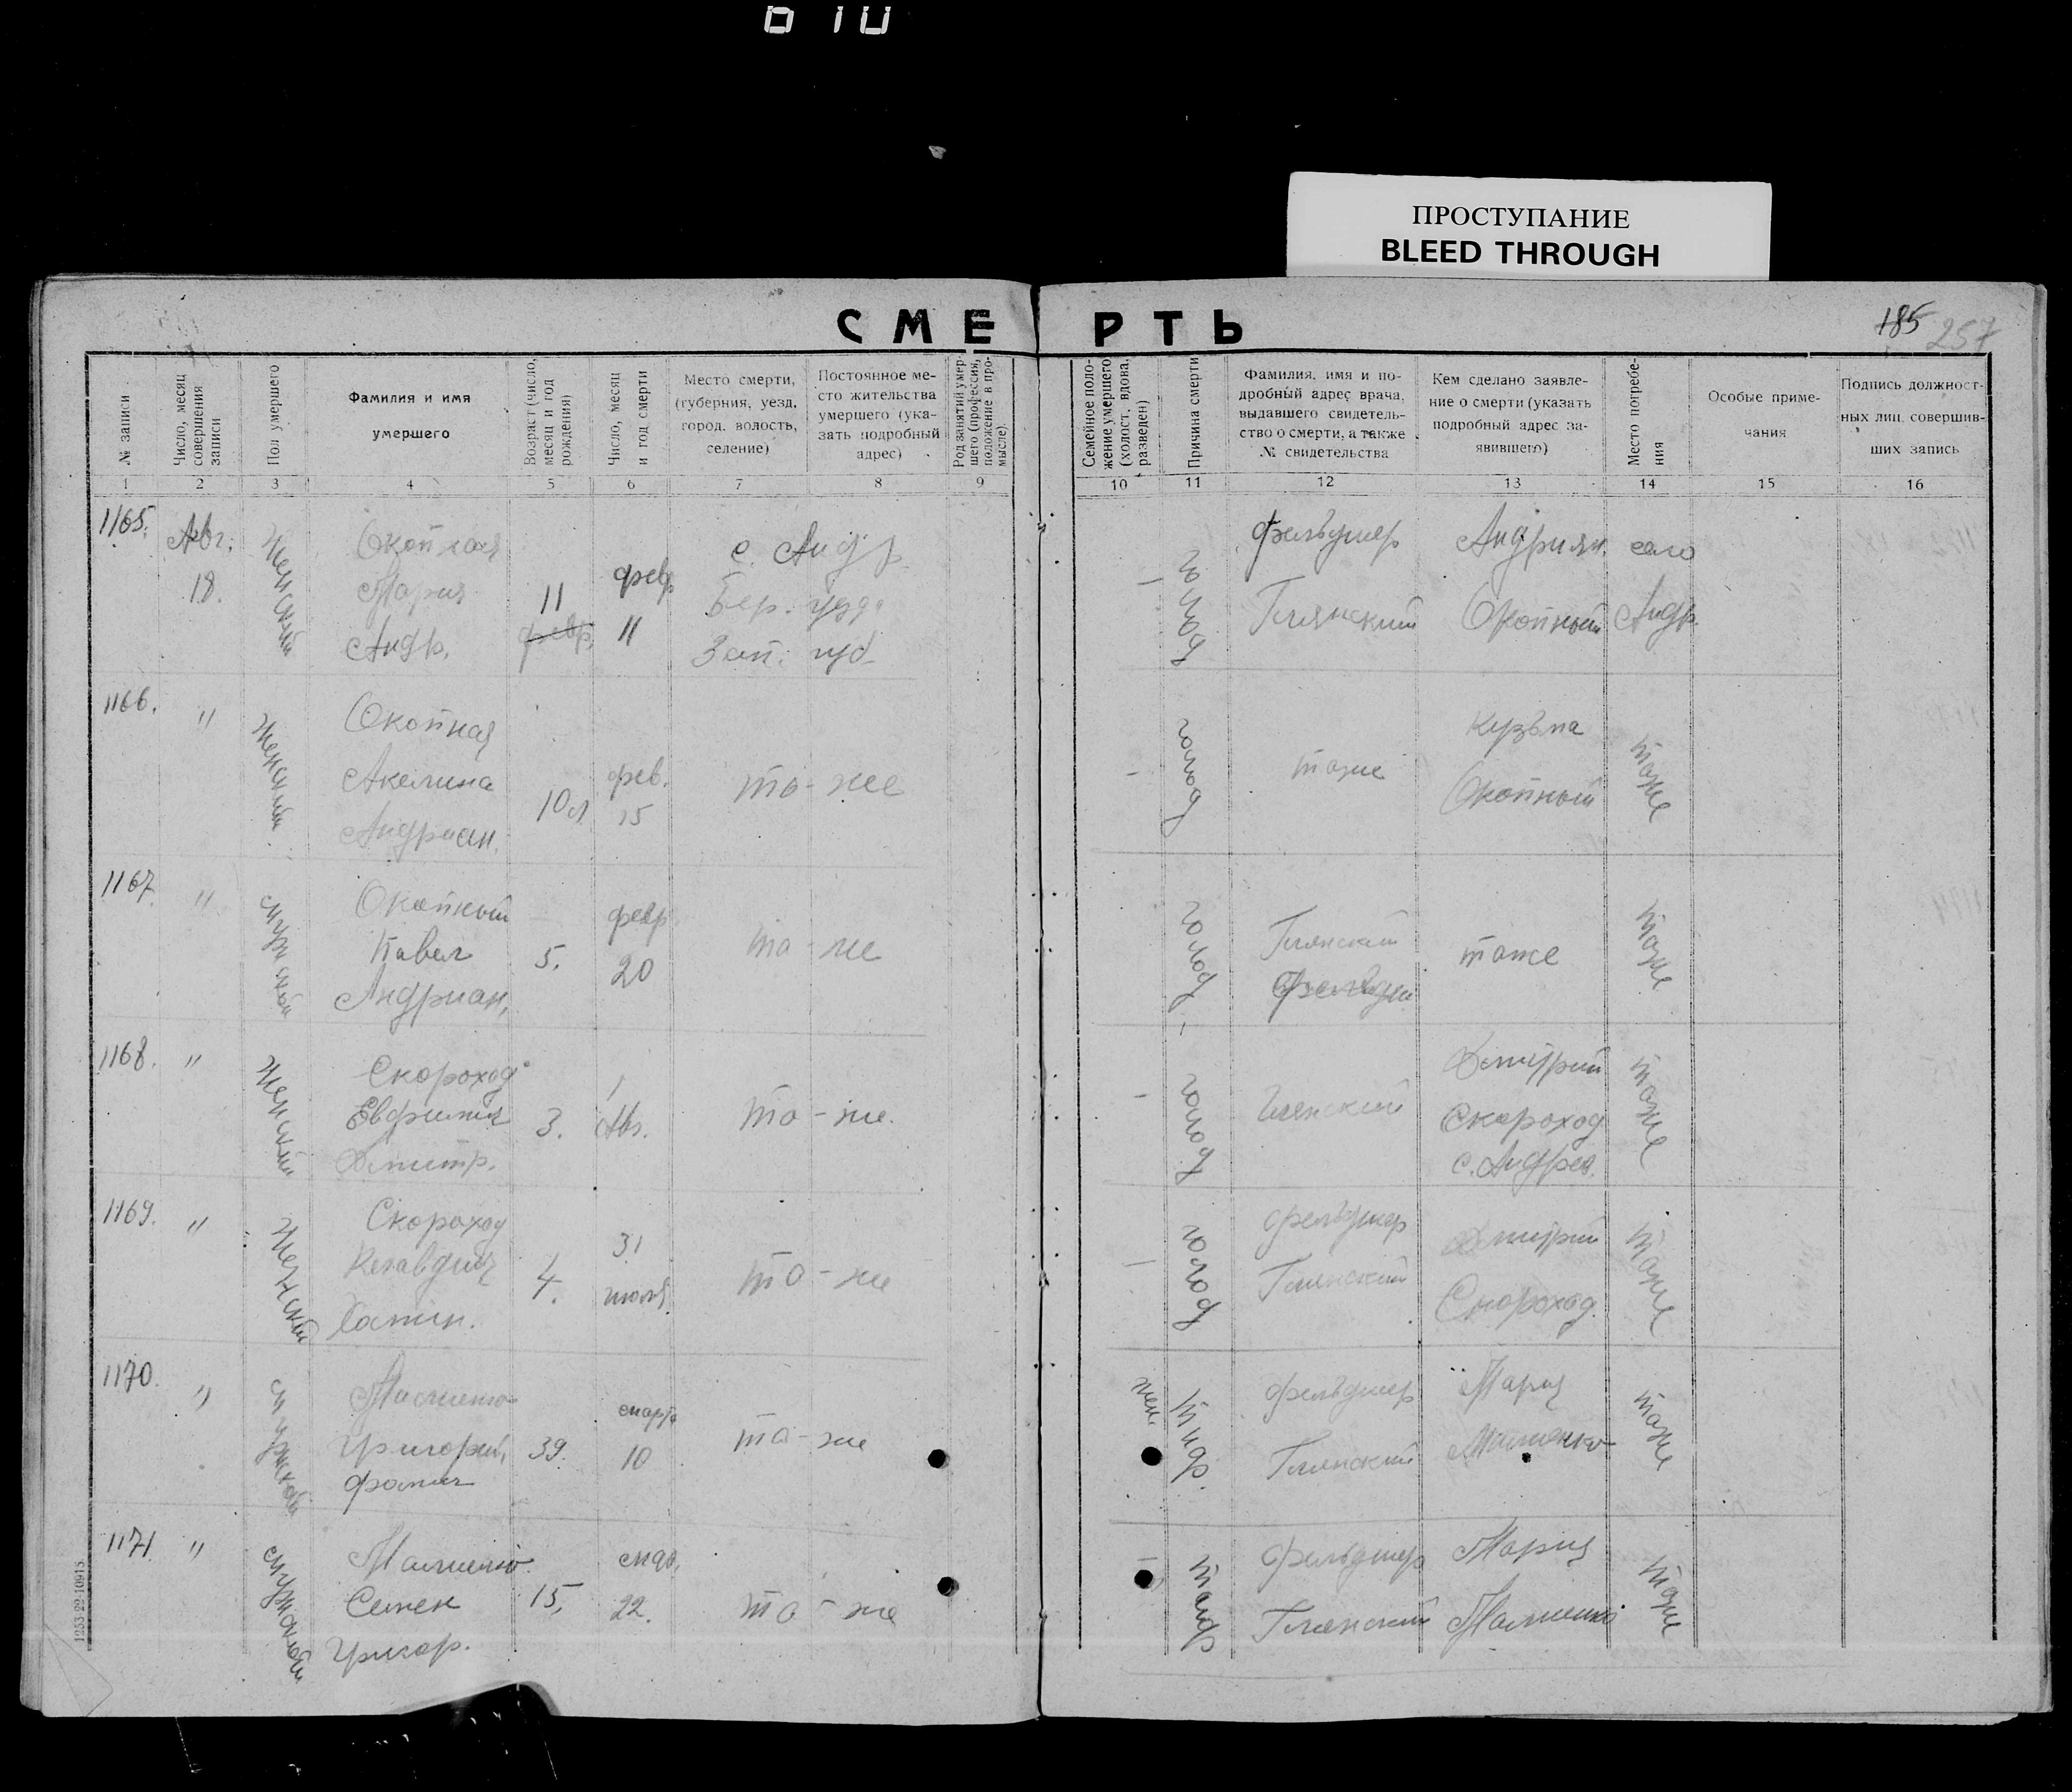 ПРОСТУПАНИЕ
BLEED THROUGH
СМЕРТЬ
185 257
№ записи
Число, месяц совершения записи
Пол умершего
Фамилия и имя
умершего
Возраст (число, месяц и год рождения)
Число, месяц и год смерти
Место смерти,
(губерния, уезд,
город, волость,
селение)
Постоянное ме-
сто жительства
умершего (ука-
зать подробный
адрес)
Род занятий умер-
шего (профессия,
положение в про-
мысле).
Семейное поло-
жение умершего
(холост, вдова,
разведен)
Причина смерти
Фамилия, имя и по-
дробный адрес врача,
выдавшего свидетель-
ство о смерти, а также
№ свидетельства
Кем сделано заявле-
ние о смерти (указать
подробный адрес за-
явившего)
Место погребе-
ния
Особые приме-
чания
Подпись должност-
ных лиц, совершив-
ших запись
1 2 3 4 5 6 7 8 9 10 11 12 13 14 15 16
1165.
Авг.
18.
женский
Окопная
Мария
Андр.
11
февр.
февр
11
с. Андр.
Бер. уезд.
Зап. губ
–
голод
фельдшер
Глянский
Андриян.
Окопный
село
Андр.
1166.
"
женский
Окопная
Акелина
Андриан.
10л
фев.
15
то-же
–
голод
тоже
Кузьма
Окопный
тоже
1167
"
мужской
Окопный
Павел
Андриан,
5.
февр
20
то-же
голод –
Глянский
тоже
тоже
1168.
"
женский
Скороход
Дмитр.
3.
1
Авг.
то-же.
–
голод
Глянский
Дмитрий
Скороход
с. Андрев.
тоже
1169.
"
женский
Скороход
4.
31
июля
то-же
–
голод
фельдшер
Глянский
Дмитрий
Скороход
тоже
1170.
"
мужской
Григорий,
Фомич
39.
марта
10
то-же
жен.
Тиф.
фельдшер
Глянский
Мария
тоже
1171.
"
мужской
Семен
Григор.
15,
22.
то-же
–
тиф
фельдшер
Глянский
Мария
тоже
1253-22 10915